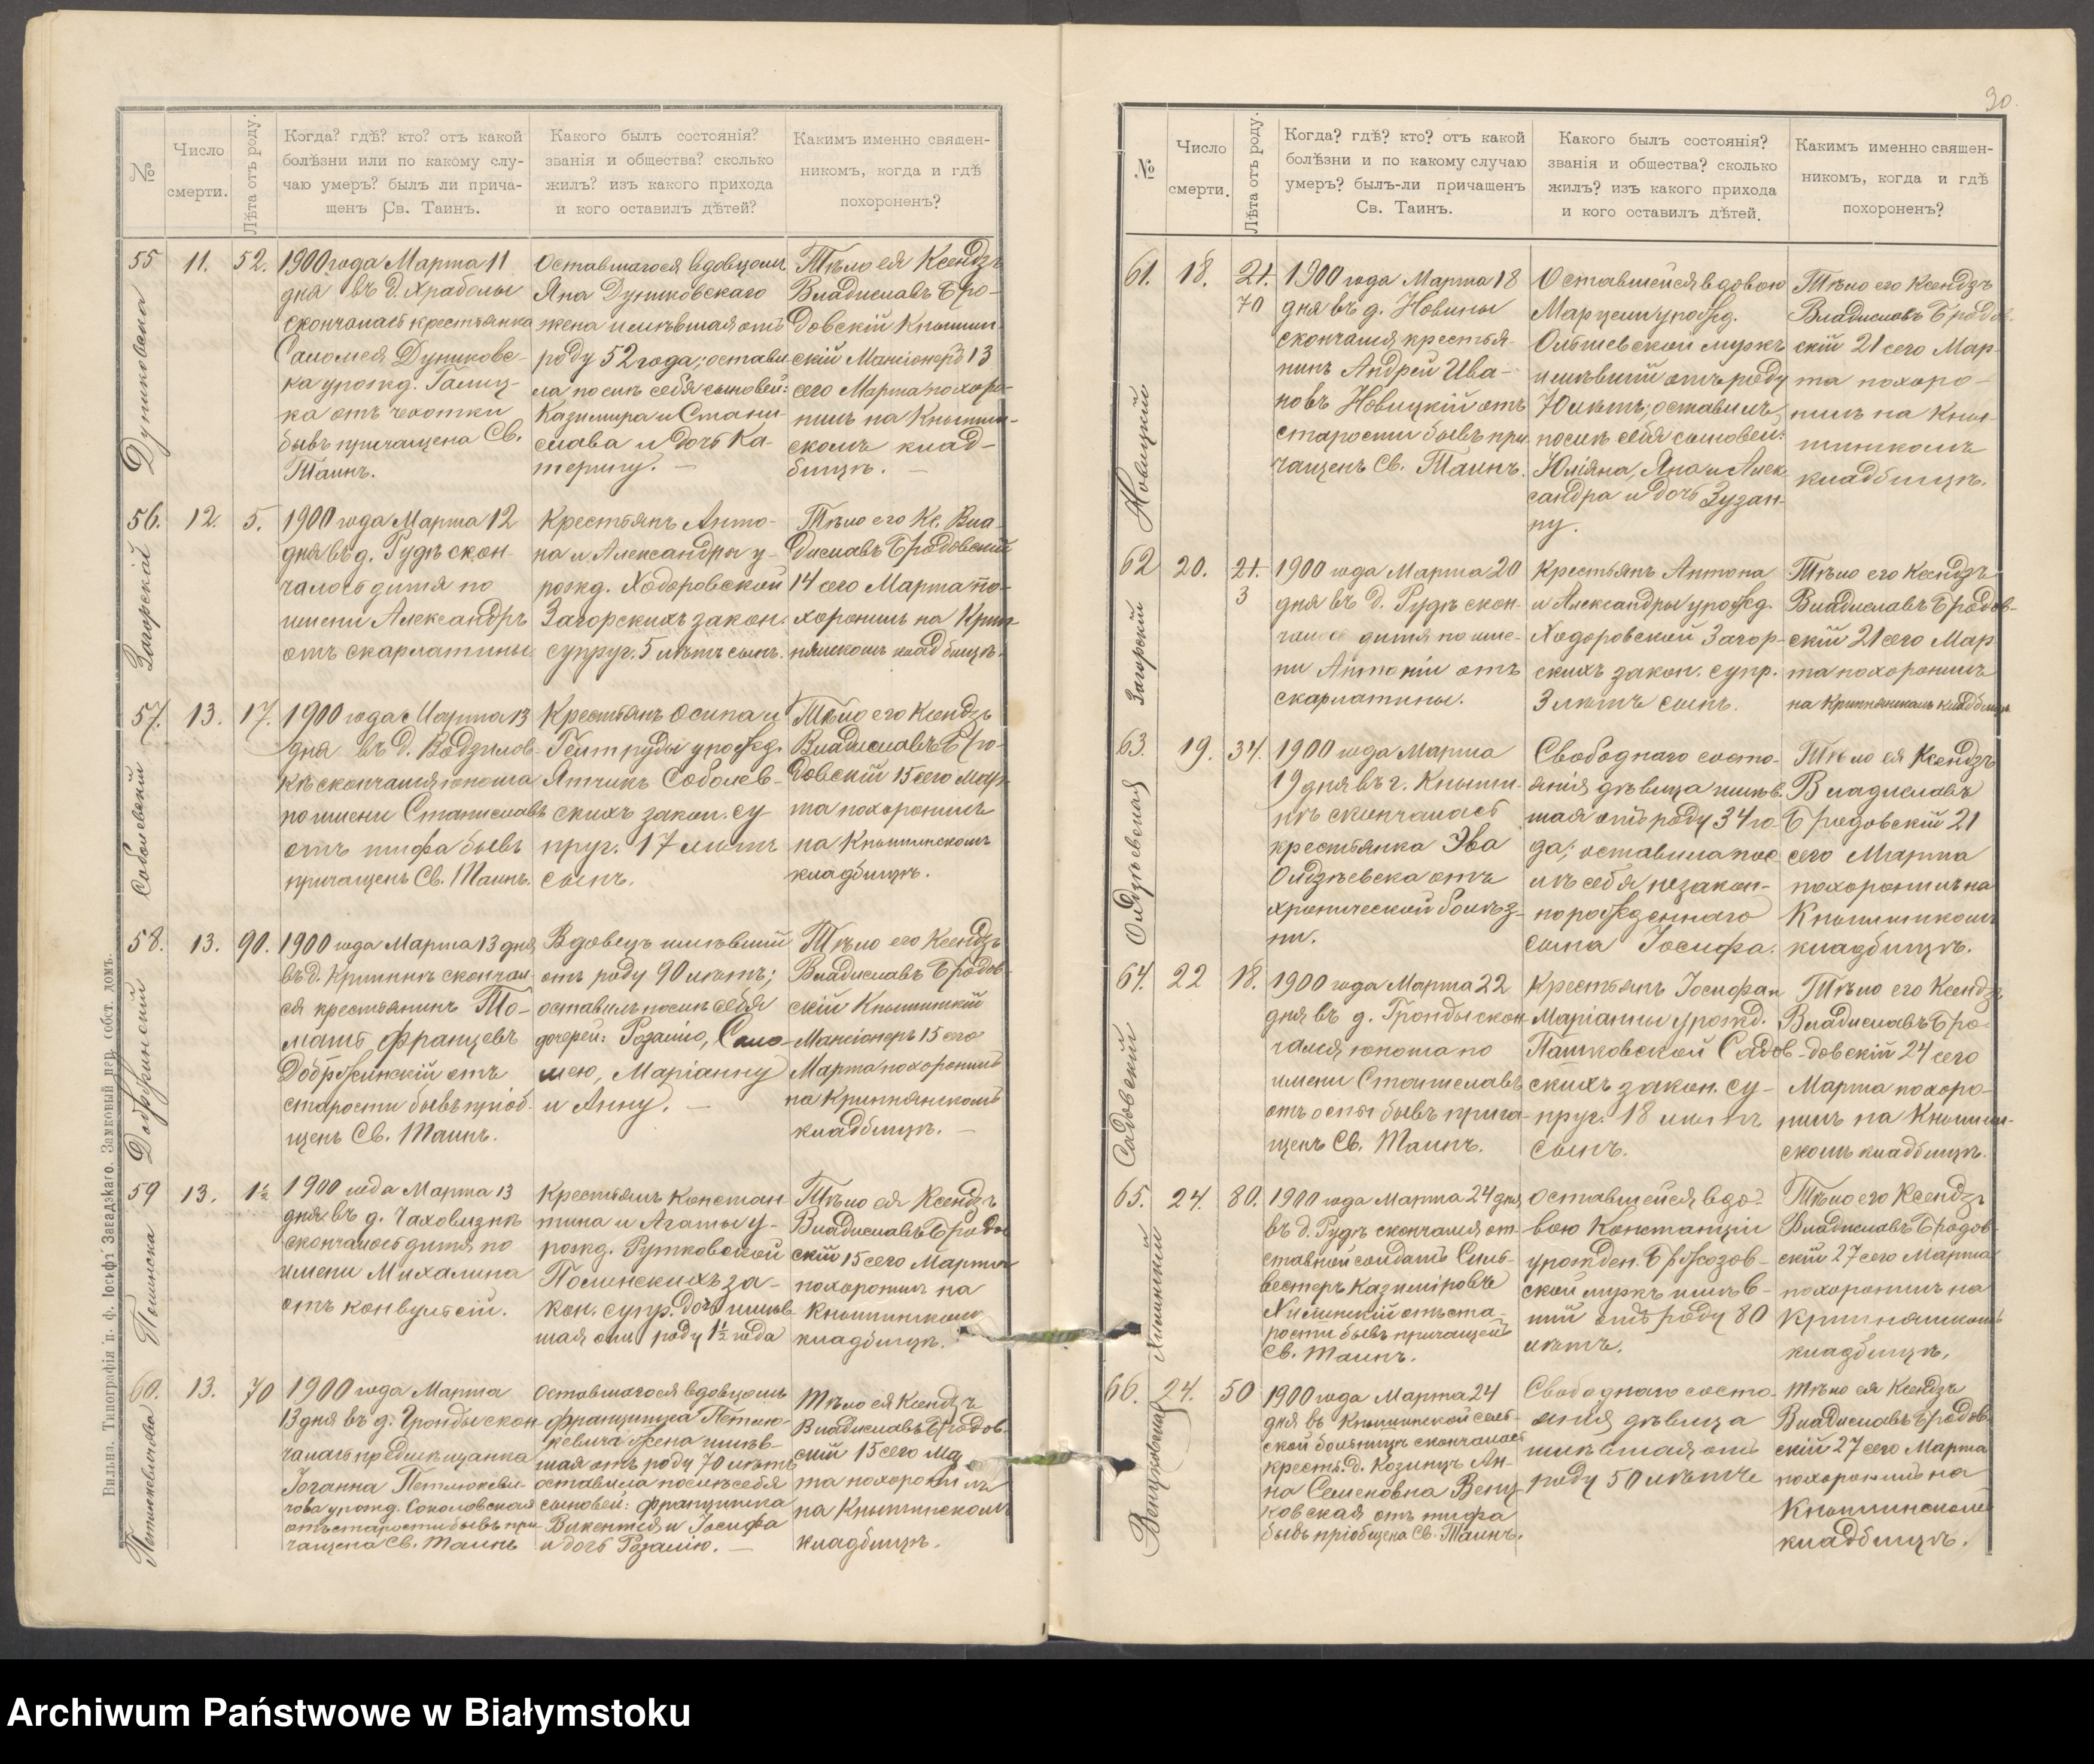 №
Число
смерти.
Лѣта отъ роду.
Когда? гдѣ? кто? отъ какой
болѣзни или по какому слу-
чаю умеръ? былъ ли прича-
щенъ Св. Таинъ.
Какого былъ состоянія?
званія и общества? сколько
жилъ? изъ какого прихода
и кого оставилъ дѣтей?
Каким именно священ-
никомъ, когда и гдѣ
похороненъ?
55
Дуниковска
11.
52.
1900 года Марта 11
дня въ д. Храболы
скончалась крестьянка
Саломея Дуниковс-
ка урожд. Галиц-
ка отъ чахотки
бывъ причащена Св.
Таинъ.
Оставшагося вдовцомъ
Яна Дуниковскаго
жена имѣвшая отъ
роду 52 года; остави
ла послѣ себя сыновей:
Казимира и Стани
слава и дочь Ка-
терину. —
Тѣло ея Ксендзъ
Владиславъ Бро-
довскій Кнышин-
скій Мансіонеръ 13
сего Марта похоро-
нилъ на Кнышин-
скомъ клад-
бищѣ. —
56.
Загорскій
12.
5.
1900 года Марта 12
дня въ д. Рудѣ скон-
чалось дитя по
имени Александръ
отъ скарлатины
Крестьянъ Анто-
на и Александры у-
рожд. Ходоровской
Загорскихъ закон.
супруг. 5 лѣтъ сынъ.
Тѣло его Кс. Вла-
диславъ Бродовскій
14 сего Марта по-
хоронилъ на Крип-
нянскомъ кладбищѣ.
57.
Соболевскій
13.
17.
1900 года Марта 13
дня въ д. Водзилов-
кѣ скончался юноша
по имени Станиславъ
отъ тифа бывъ
причащенъ Св. Таинъ.
Крестьянъ Осипа и
Гертруды урожд.
Янчикъ Соболев-
скихъ закон. су-
пруг. 17 лѣтъ
сынъ.
Тѣло его Ксендзъ
Владиславъ Бро-
довскій 15 сего Мар-
та похоронилъ
на Кнышинскомъ
кладбищѣ.
58.
Добржинскій
13.
90.
1900 года Марта 13 дня
въ д. Крипнѣ скончал-
ся крестьянинъ То-
машъ Францевъ
Добржинскій отъ
старости бывъ пріоб-
щенъ Св. Таинъ.
Вдовецъ имѣвшій
отъ роду 90 лѣтъ;
оставилъ послѣ себя
дочерей: Розалію, Сало-
мею, Маріанну
и Анну. —
Тѣло его Ксендзъ
Владиславъ Бродов-
скій Кнышинскій
Мансіонеръ 15 сего
Марта похоронилъ
на Крипнянскомъ
кладбищѣ. —
59
Полинска
13.
1½
1900 года Марта 13
дня въ д. Чаховизнѣ
скончалось дитя по
имени Михалина
отъ конвульсій.
Крестьянъ Констан
тина и Агаты у-
рожд. Рутковской
Полинскихъ за-
кон. супр. дочь имѣв-
шая отъ роду 1½ года
Тѣло ея Ксендзъ
Владиславъ Бродов
скій 15 сего Марта
похоронилъ на
Кнышинскомъ
кладбищѣ.
60.
Петшкевичова
13.
70
1900 года Марта
13 дня въ д. Гронды скон
чалась
Іоганна
урожд. Соколовская
отъ старости бывъ при
чащена Св. Таинъ
Оставшагося вдовцомъ
Францишка
жена имѣв-
шая отъ роду 70 лѣтъ
оставила послѣ себя
сыновей: Францишка
Викентія и Іосифа
и дочь Розалію. —
Тѣло ея Ксендзъ
Владиславъ Бродов-
скій 15 сего Ма
та похоронилъ
на Кнышинскомъ
кладбищѣ.
Вильна. Типографія п. ф. Іосифъ Завадзкаго. Замковый пер. собст. домъ.
30.
№
Число
смерти.
Лѣта отъ роду.
Когда? гдѣ? кто? отъ какой
болѣзни и по какому случаю
умеръ? былъ-ли причащенъ
Св. Таинъ.
Какого былъ состоянія?
званія и общества? сколько
жилъ? изъ какого прихода
и кого оставилъ дѣтей.
Какимъ именно священ-
никомъ, когда и гдѣ
похороненъ?
61.
Новицкій
18.
21.
70
1900 года Марта 18
дня въ д. Новины
скончался крестья-
нинъ Андрей Ива-
новъ Новицкій отъ
старости бывъ при
чащенъ Св. Таинъ.
Оставшейся вдовою
Марцели урожд.
Ольшевской мужъ
имѣвшій отъ роду
70 лѣтъ; оставилъ
послѣ себя сыновей:
Юліяна, Яна и Алек
сандра и дочь Зузан-
ну.
Тѣло его Ксендзъ
Владиславъ Бродов-
скій 21 сего Мар-
та похоро-
нилъ на Кны-
шинскомъ
кладбищѣ.
62
Загорскій
20.
21.
3
1900 года Марта 20
дня въ д. Рудѣ скон-
чалось дитя по име-
ни Антоній отъ
скарлатины.
Крестьянъ Антона
и Александры урожд.
Ходоровской Загор-
скихъ закон. супр.
3 лѣтъ сынъ.
Тѣло его Ксендзъ
Владиславъ Бродов-
скій 21 сего Мар
та похоронилъ
на Крипнянскомъ кладбищѣ
63.
Олдзѣевская
19.
34.
1900 года Марта
19 дня въ г. Кныши-
нѣ скончалась
крестьянка Эва
Олдзѣевска отъ
хронической болѣз-
ни.
Свободнаго состо-
янія дѣвица имѣв-
шая отъ роду 34 го-
да; оставила пос
лѣ себя незакон-
норожденнаго
сына Іосифа.
Тѣло ея Ксендзъ
Владиславъ
Бродовскій 21
сего Марта
похоронилъ на
Кнышинскомъ
кладбищѣ.
64.
Садовскій
22
18.
1900 года Марта 22
дня въ д. Гронды скон-
чался юноша по
имени Станиславъ
отъ оспы бывъ прича-
щенъ Св. Таинъ.
Крестьянъ Іосифа и
Маріанны урожд.
Пашковской Садов-
скихъ закон. су-
пруг. 18 лѣтъ
сынъ.
Тѣло его Ксендзъ
Владиславъ Бро-
довскій 24 сего
Марта похоро-
нилъ на Кнышин-
скомъ кладбищѣ.
65.
Хилинскій
24.
80.
1900 года Марта 24 дня
въ д. Рудѣ скончался от-
ставной солдатъ Силь-
вестеръ Казиміровъ
Хилинскій отъ ста-
рости бывъ причащенъ
Св. Таинъ.
Оставшейся вдо-
вою Констанціи
урожден. Бржозов-
ской мужъ имѣв-
шій отъ роду 80
лѣтъ.
Тѣло его Ксендзъ
Владиславъ Бродов-
скій 27 сего Марта
похоронилъ на
Крипнянскомъ
кладбищѣ.
66.
Венцковская
24.
50
1900 года Марта 24
дня въ Кнышинской сель-
ской больницѣ скончалась
крестья. д. Козинцъ Ан-
на Семеновна Венц
ковская отъ тифа
бывъ пріобщена Св. Таинъ.
Свободнаго состо-
янія дѣвица
имѣвшая отъ
роду 50 лѣтъ
Тѣло ея Ксендзъ
Владиславъ Бродов-
скій 27 сего Марта
похоронилъ на
Кнышинскомъ
кладбищѣ.
Archiwum Państwowe w Białymstoku